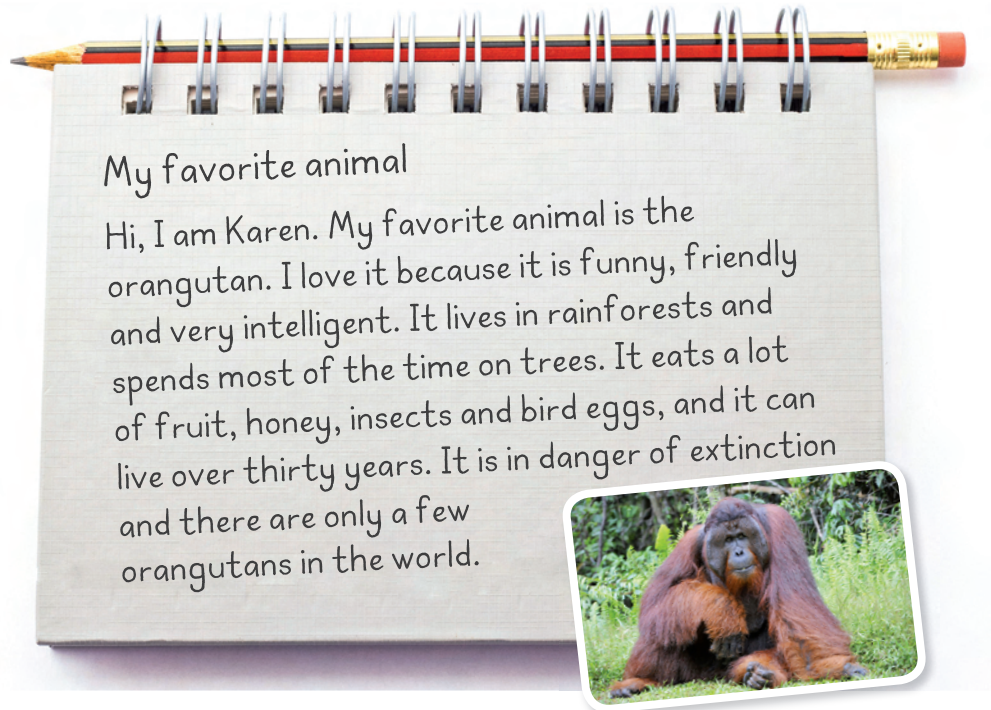 My favorite animal
Hi, I am Karen. My favorite animal is the
orangutan. I love it because it is funny, friendly
and very intelligent. It lives in rainforests and
spends most of the time on trees. It eats a lot
of fruit, honey, insects and bird eggs, and it can
live over thirty years. It is in danger of extinction
and there are only a few
orangutans in the world.